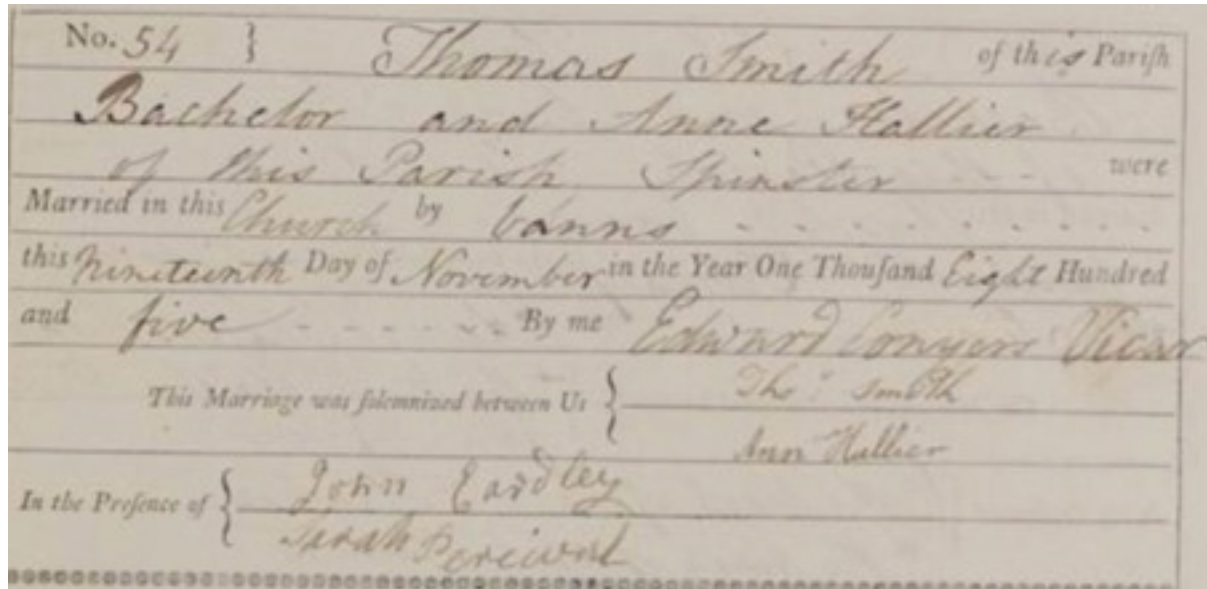 No. 54 } Thomas Smith of this Pariſh
Bachelor and Anne Hallier
of this Parish Spinster - - - - were
Married in this Church by banns - - - - - - - - -
this Nineteenth Day of November in the Year One Thouſand Eight Hundred
and five - - - - - - By me Edward Conyers Vicar
This Marriage was ſolemnized between Us { Thos. Smith
Ann Hallier
In the Preſence of { John Eardley
Sarah Percival